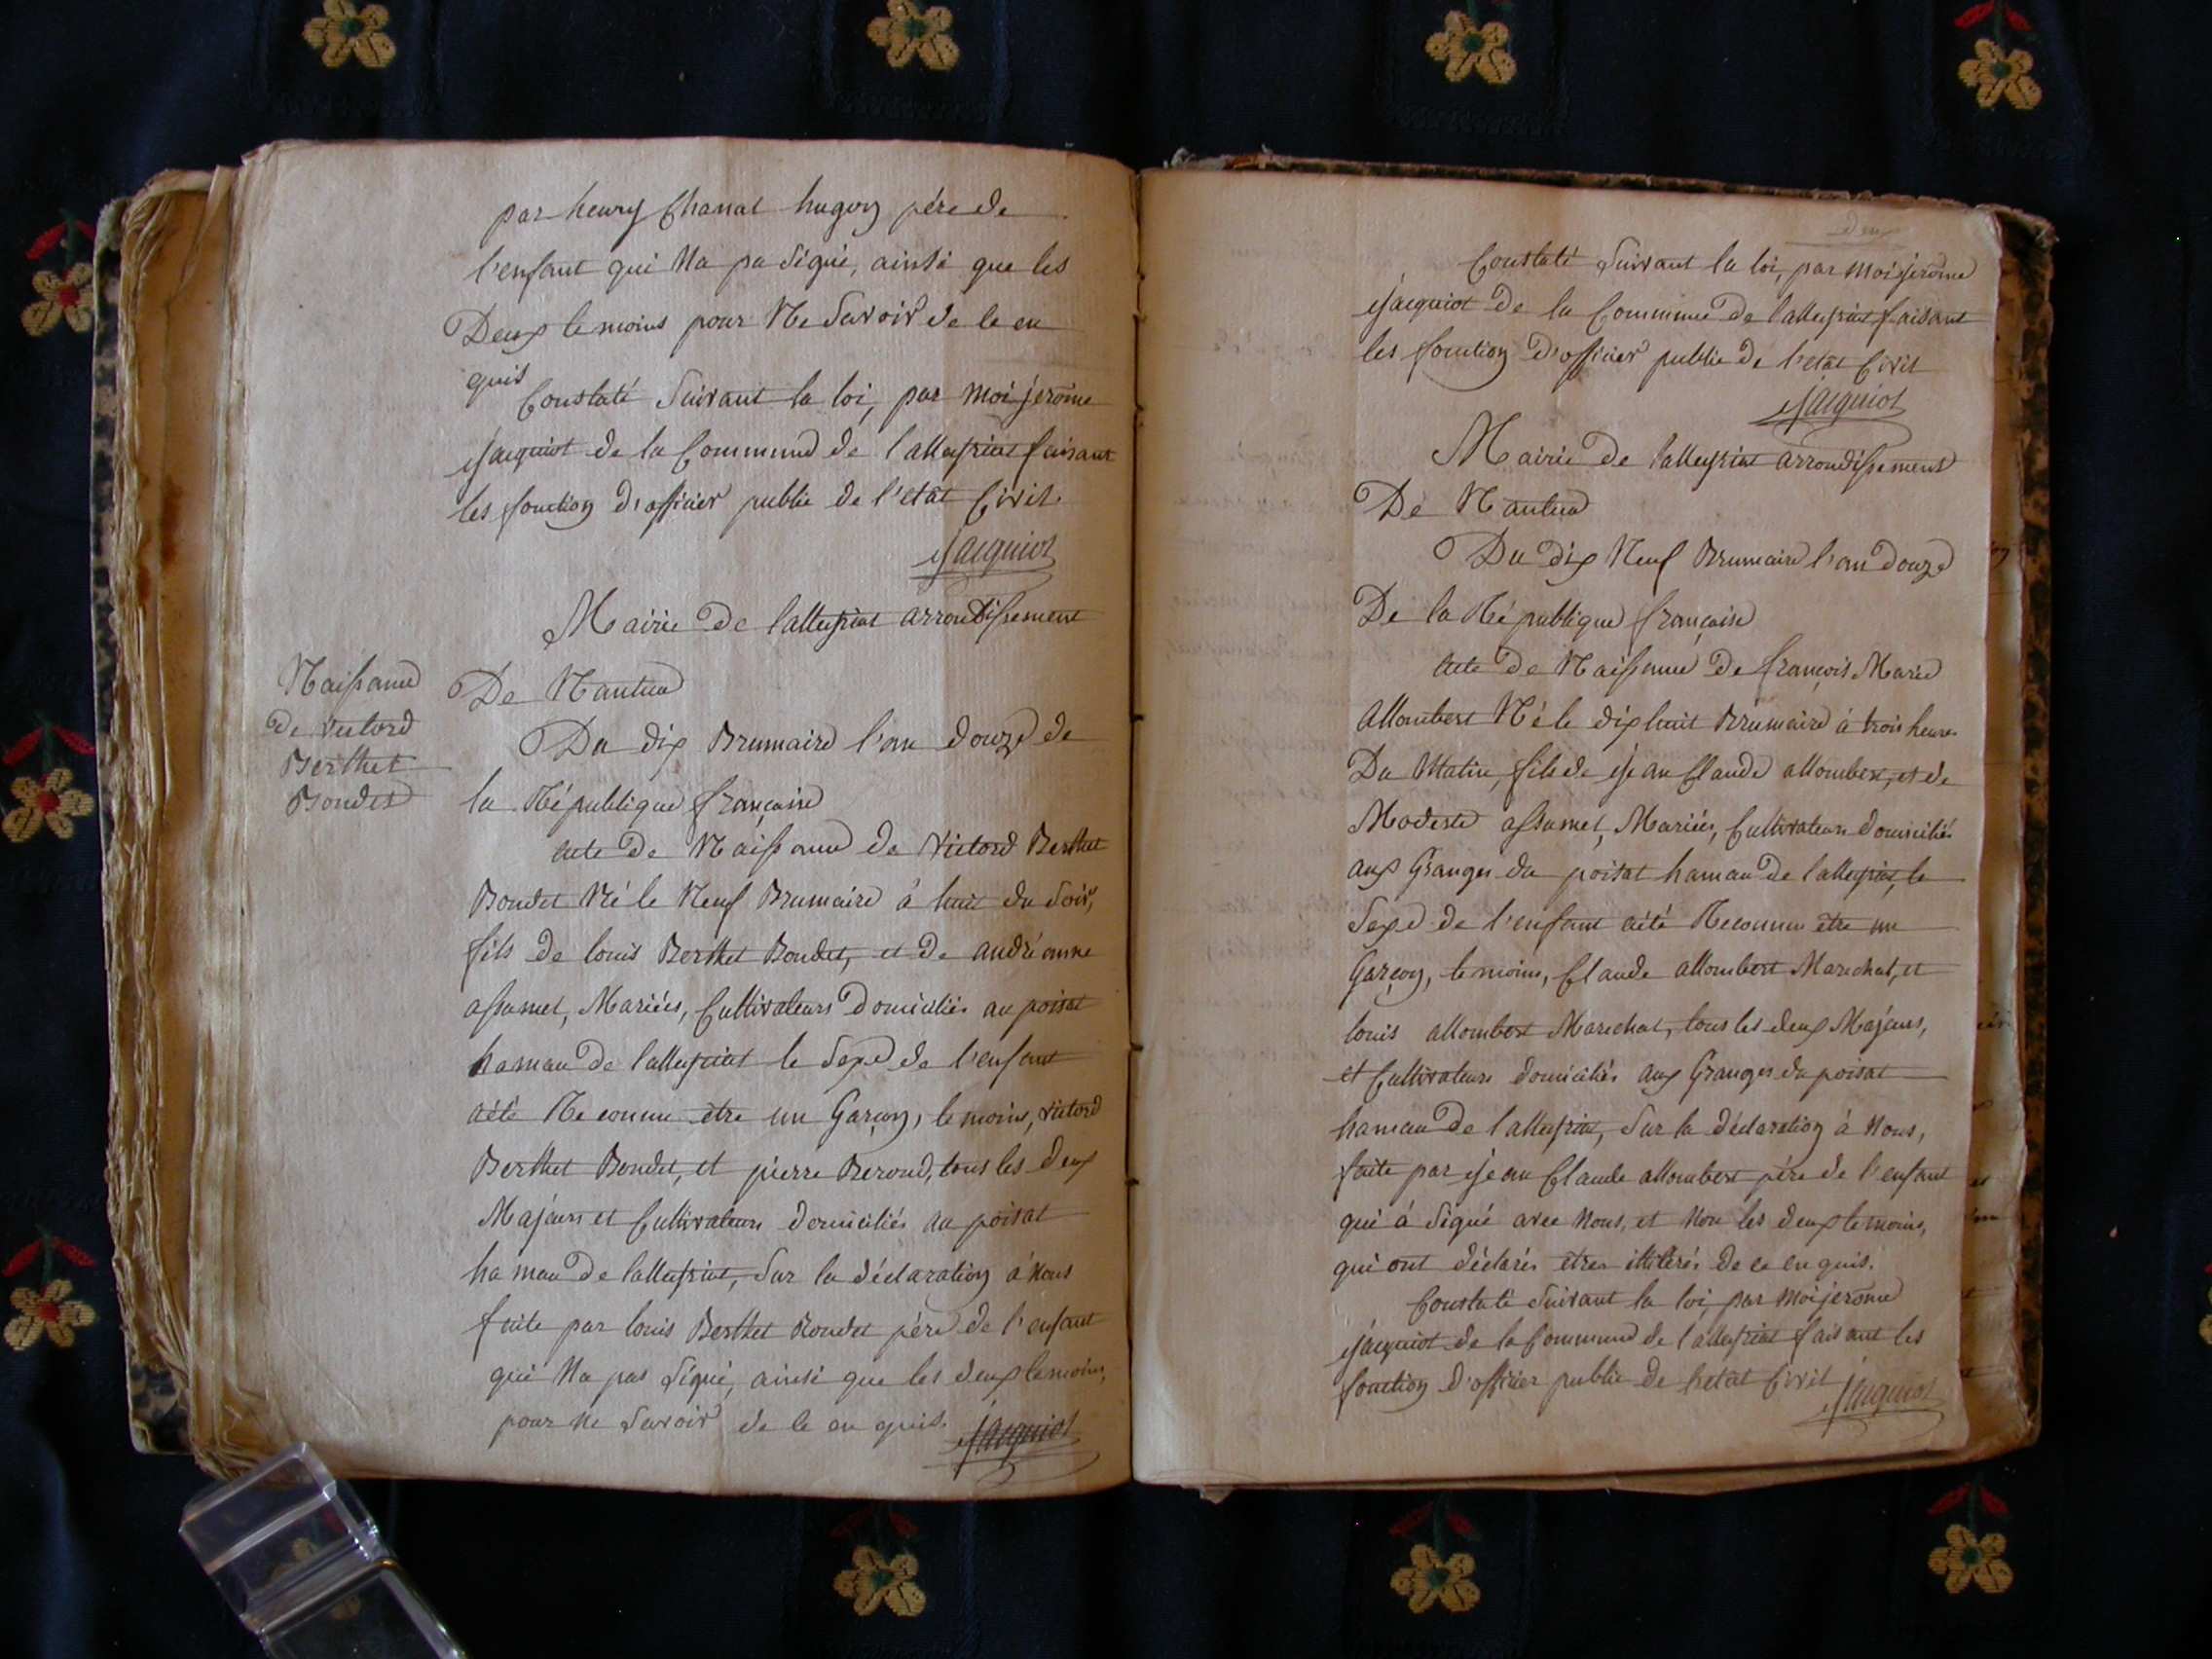 par henry Chanal hugon père de
l'enfant qui Na pa Signé, ainsi que les
Deux temoins pour Ne Savoir de le en
quis
Constaté Suivant la loi, par moi jerome
Jacquiot de la Commune de lalleyriat faisant
les fonction d'officier public de l'etat Civil.
Jacquiot
Mairie de lalleyriat arrondissement
De Nantua
Naissance
de victord
Berthet
Bondet
Du dix Brumaire l'an douze de
la République française
acte de Naissance de Victord Berthet
Bondet Né le Neuf Brumaire à huit du Soir,
fils de louis Berthet Bondet, et de andréanne
assumet, Mariées, Cultivateurs Domiciliés au poisat
hamau de lalleyriat le Sexe de l'enfant
aété Reconnu être un Garçon, temoins, victord
Berthet Bondet, et pierre Beroud, tous les deux
Majeurs et Cultivateurs domiciliés au poisat
hamau de lalleyriat, Sur la déclaration à Nous
faite par louis Berthet Bondet père de l'enfant
qui Na pas Signé, ainsi que les deux temoins,
pour Ne Savoir de le en quis. Jacquiot
deux
Constaté Suivant la loi, par moi jerome
Jacquiot de la Commune de lalleyriat faisant
les fonction d'officier public de l'etat Civil
Jacquiot
Mairie de lalleyriat arrondissement
De Nantua
Du dix Neuf Brumaire l'an douze
De la République française
acte de Naissance de françois Marie
Allombert Né le dix huit Brumaire à trois heures
Du Matin, fils de Jean Claude allombert, et de
Modeste assumet, Mariées, Cultivateurs domiciliés
aux Granges du poisat hamau de lalleyriat, le
Sexe de l'enfant aété Reconnu être un
Garçon, temoins, Claude allombert Marechal, et
louis allombert Marechal, tous les deux Majeurs,
et Cultivateurs domiciliés aux Granges du poisat
hamau de lalleyriat, Sur la déclaration à Nous,
faite par Jean Claude allombert père de l'enfant
qui à Signé avec Nous, et Non les deux temoins,
qui ont déclarés êtres illitérés de ce en quis.
Constaté Suivant la loi, par moi jerome
Jacquiot de la Commune de lalleyriat faisant les
fonction d'officier public de l'etat Civil Jacquiot